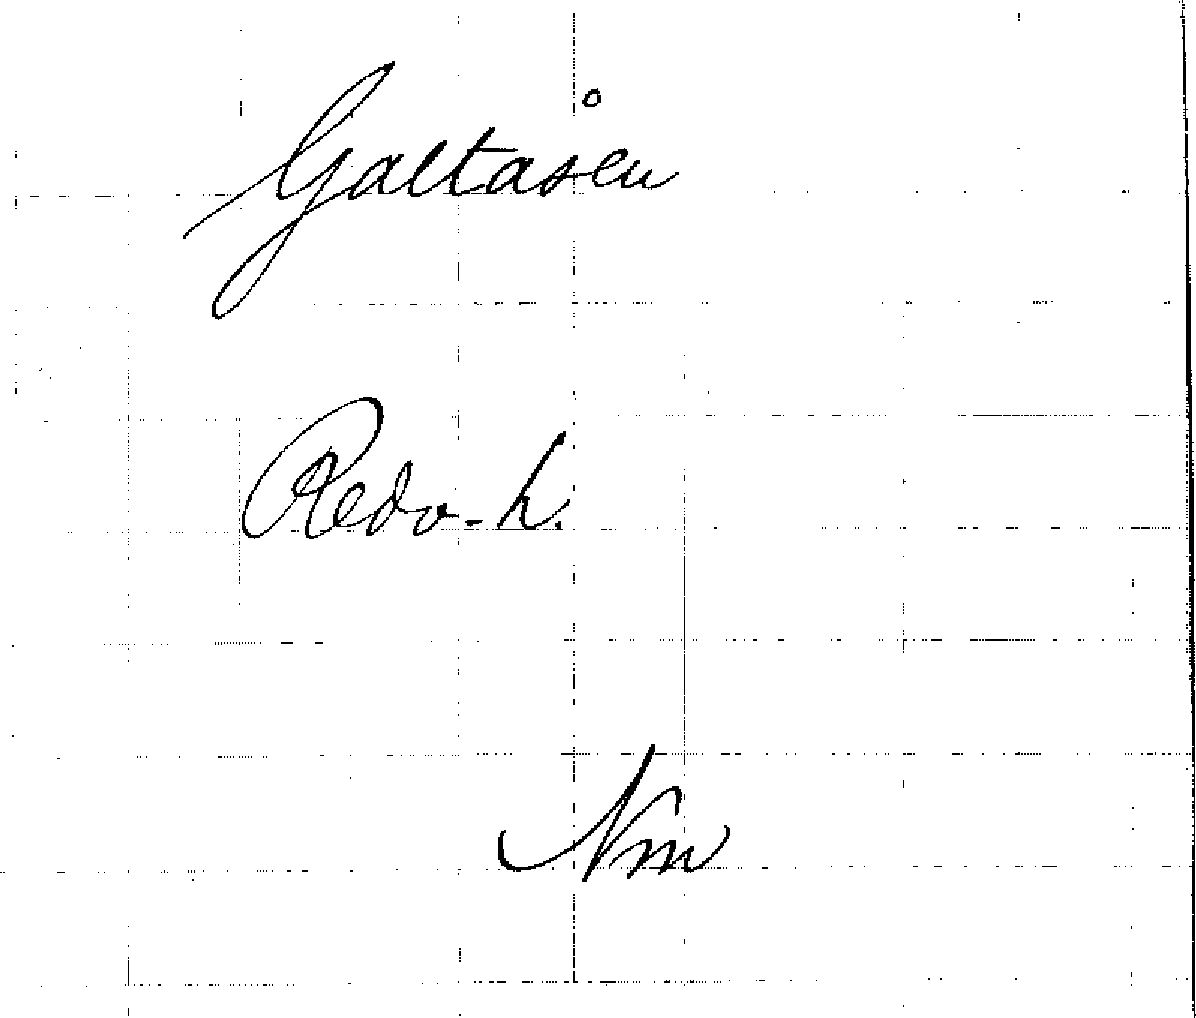 Galtåsen
Redv. h.
Nm